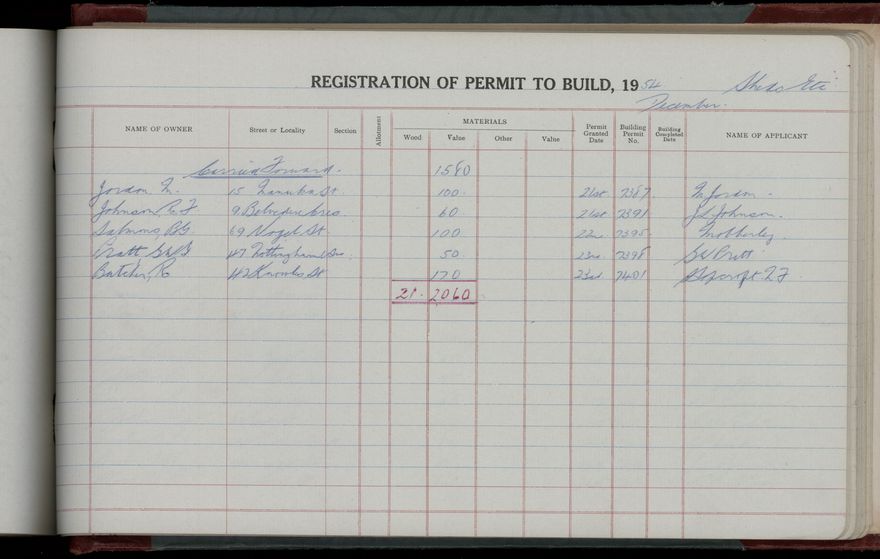 REGISTRATION OF PERMIT TO BUILD, 1954 Sheds Etc
December.
NAME OF OWNER Street or Locality Section Allotment MATERIALS Wood Value Other Value Permit Granted Date Building Permit No. Building Completed Date NAME OF APPLICANT
Carried Forward. 1580
Jordan M. 15 St 100. 21st 7387 M Jordan.
Johnson R. F 9 Belvedere Cres 60. 21st 7391 Johnson.
Salmons, 69 Vogel St 100 7395
Pratt 47 Nottingham 50. 7398 Pratt
Batcher, R 42 Knowles St 170 23rd 7401
21. 2060